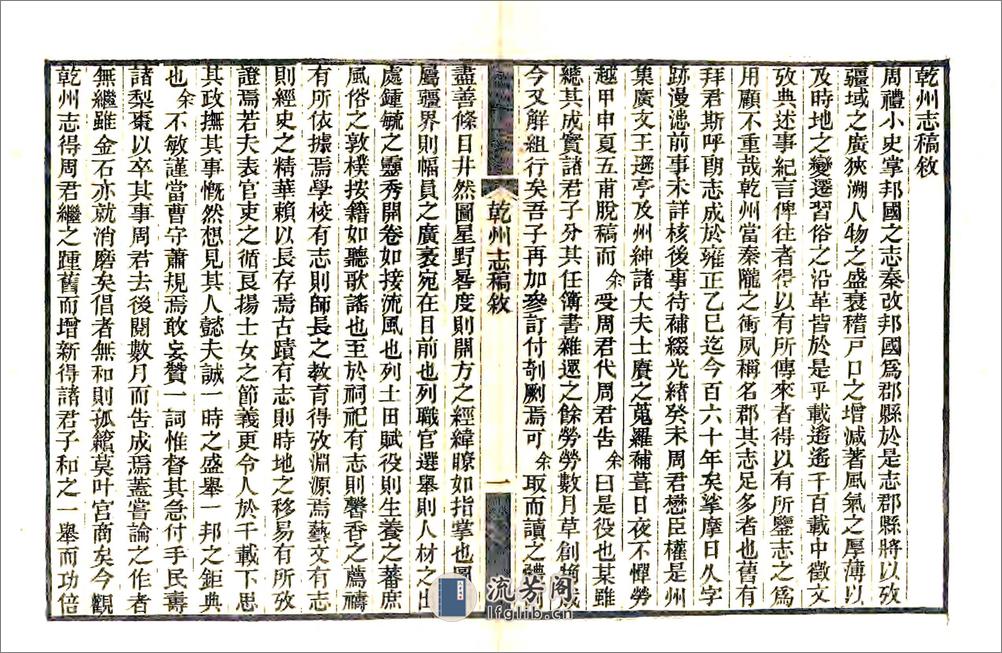 乾州志稿敘
周禮小史掌邦國之志秦改邦國爲郡縣於是志郡縣將以攷
疆域之廣狹溯人物之盛衰稽戸口之增減著風氣之厚薄以
及時地之變遷習俗之沿革皆於是乎載遙遙千百載中徵文
攷典述事紀言俾往者得以有所傳來者得以有所鑒志之爲
用顧不重哉乾州當秦隴之衝夙稱名郡其志足多者也舊有
拜君斯呼朗志成於雍正乙巳迄今百六十年矣摹摩日久字
跡漫漶前事未詳核後事待補綴光緒癸未周君懋臣權是州
集廣文王選亭及州紳諸大夫士賡之蒐羅補葺日夜不憚勞
越甲申夏五甫脫稿而余受周君代周君告余曰是役也某雖
總其成實諸君子分其任簿書雜遝之餘勞勞數月草創
今又解組行矣吾子再加參訂付剞劂焉可余取而讀之
乾州志稿敘
一
盡善條目井然圖星野晷度則開方之經緯瞭如指掌也圖
屬疆界則幅員之廣袤宛在目前也列職官選舉則人材之出
處鍾毓之靈秀開卷如接流風也列土田賦役則生養之蕃庶
風俗之敦樸按籍如聽歌謠也至於祠祀有志則馨香之薦禱
有所依據焉學校有志則師長之教育得攷淵源焉藝文有志
則經史之精華賴以長存焉古蹟有志則時地之移易有所攷
證焉若夫表官吏之循良揚士女之節義更令人於千載下思
其政撫其事慨然想見其人懿夫誠一時之盛舉一邦之鉅典
也余不敏謹當曹守蕭規焉敢妄贊一詞惟督其急付手民壽
諸梨棗以卒其事周君去後閱數月而告成焉蓋嘗論之作者
無繼雖金石亦就消磨矣倡者無和則孤籟莫叶宮商矣今觀
乾州志得周君繼之踵舊而增新得諸君子和之一舉而功倍
流芳阁
lfglib.cn